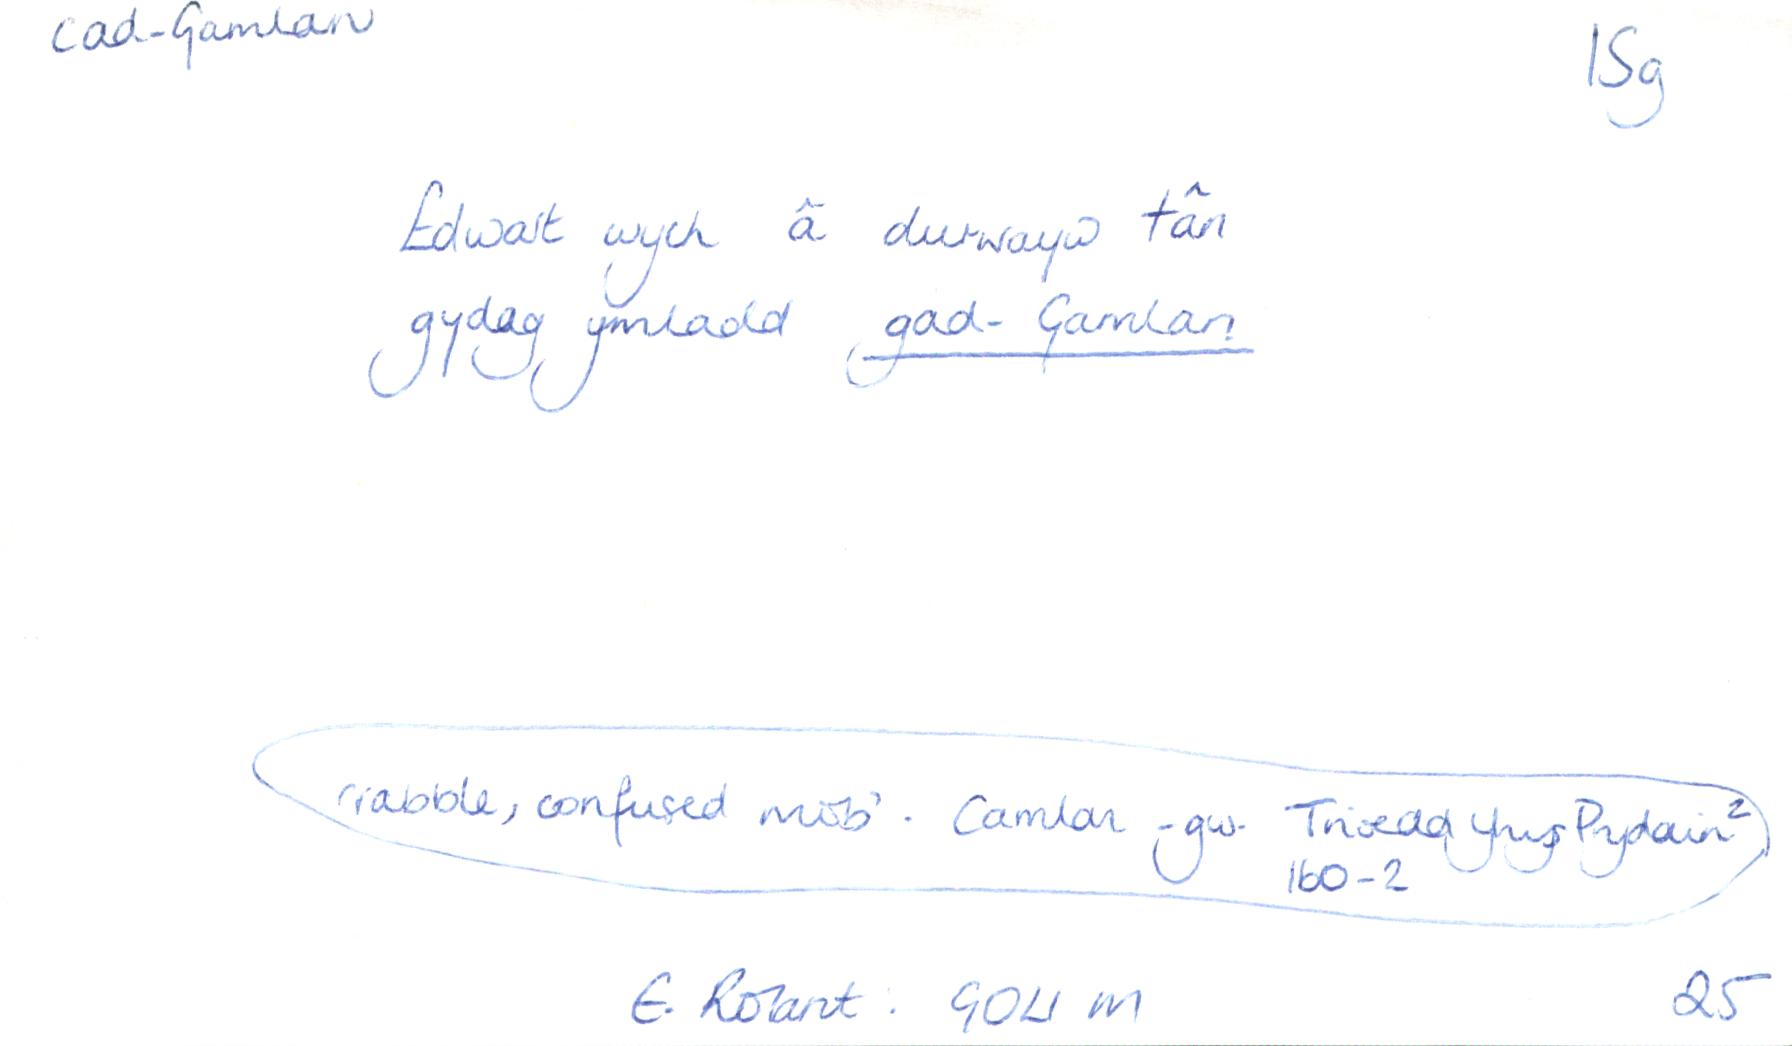 cad-Gamlan
15g
Edwart wych â durwayw tân
gydag ymladd gad-Gamlan
'rabble, confused mob'. Camlan - gw. Trioedd Ynys Prydain²
160-2
E. Rolant: GOLl M 25